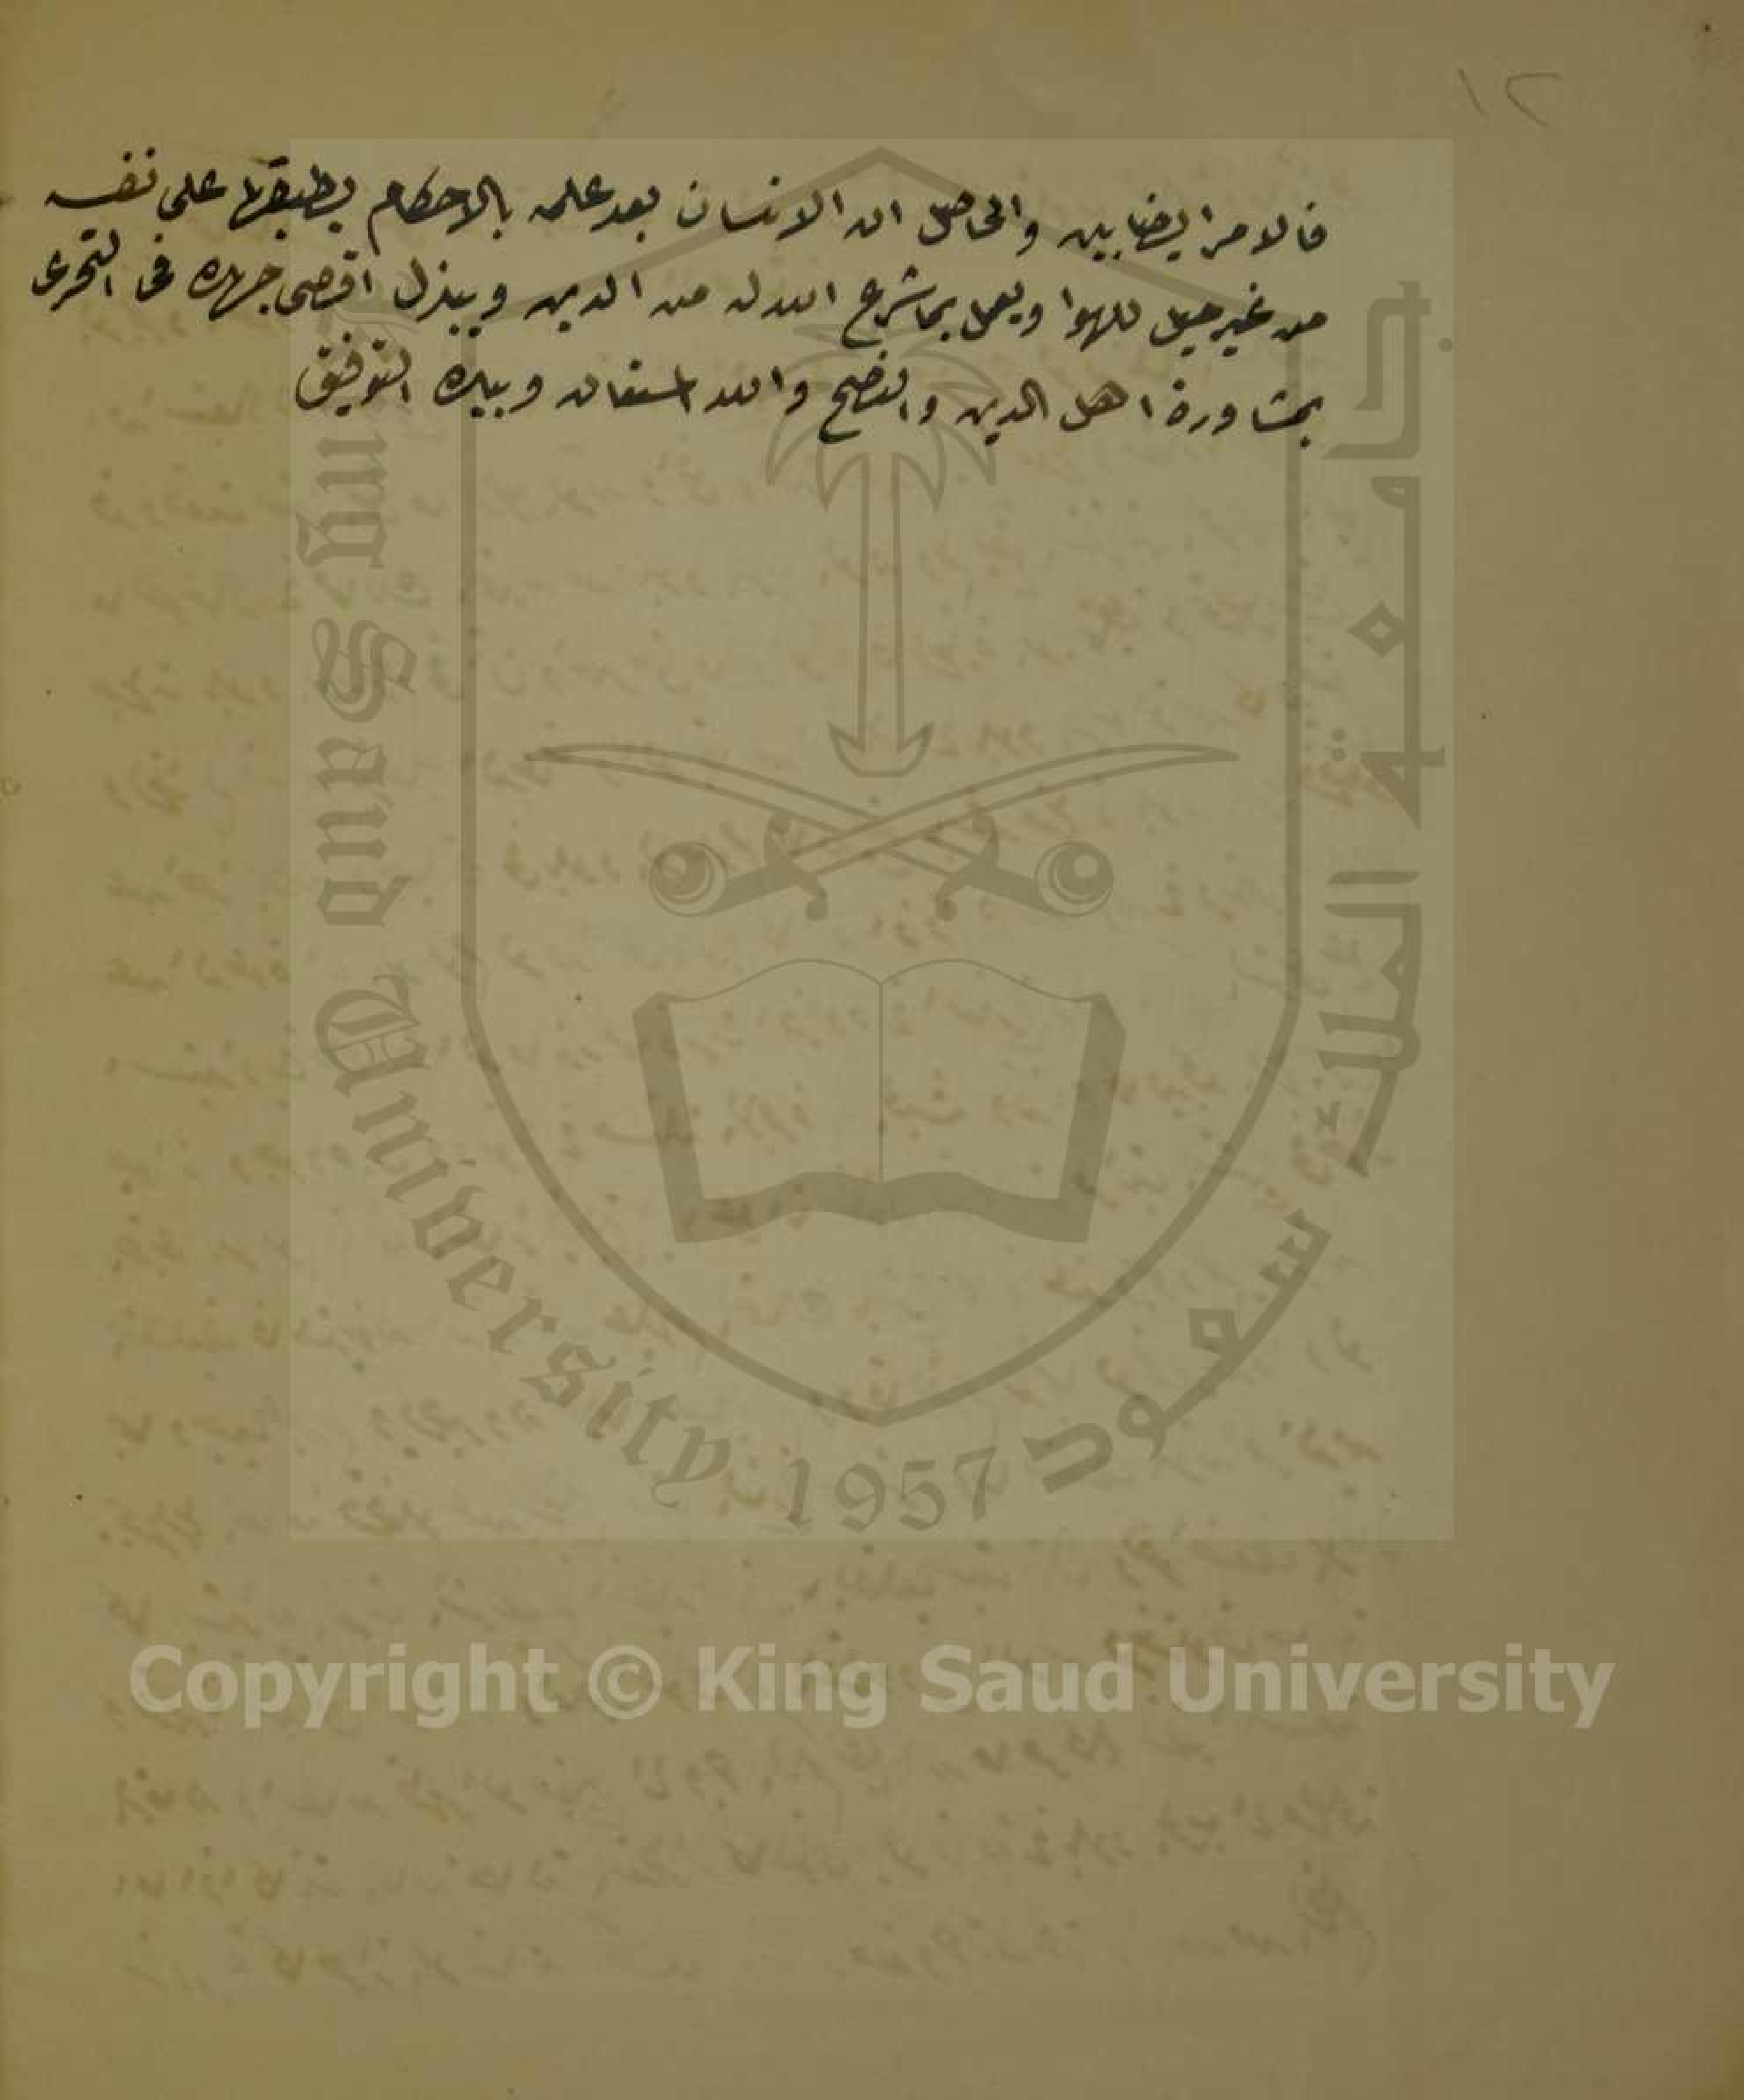 ١٢
فالامر ايضا بين والحاصل ان الانسان بعد علمه بالاحكام يطبقها على نفسه
من غير ميل للهوا ويعمل بما شرع الله له من الدين ويبذل اقصى جهده في التحرى
بمشاورة اهل الدين والنصح والله المستعان وبيده التوفيق
جامعة الملك سعود
King Saud University 1957
Copyright © King Saud University